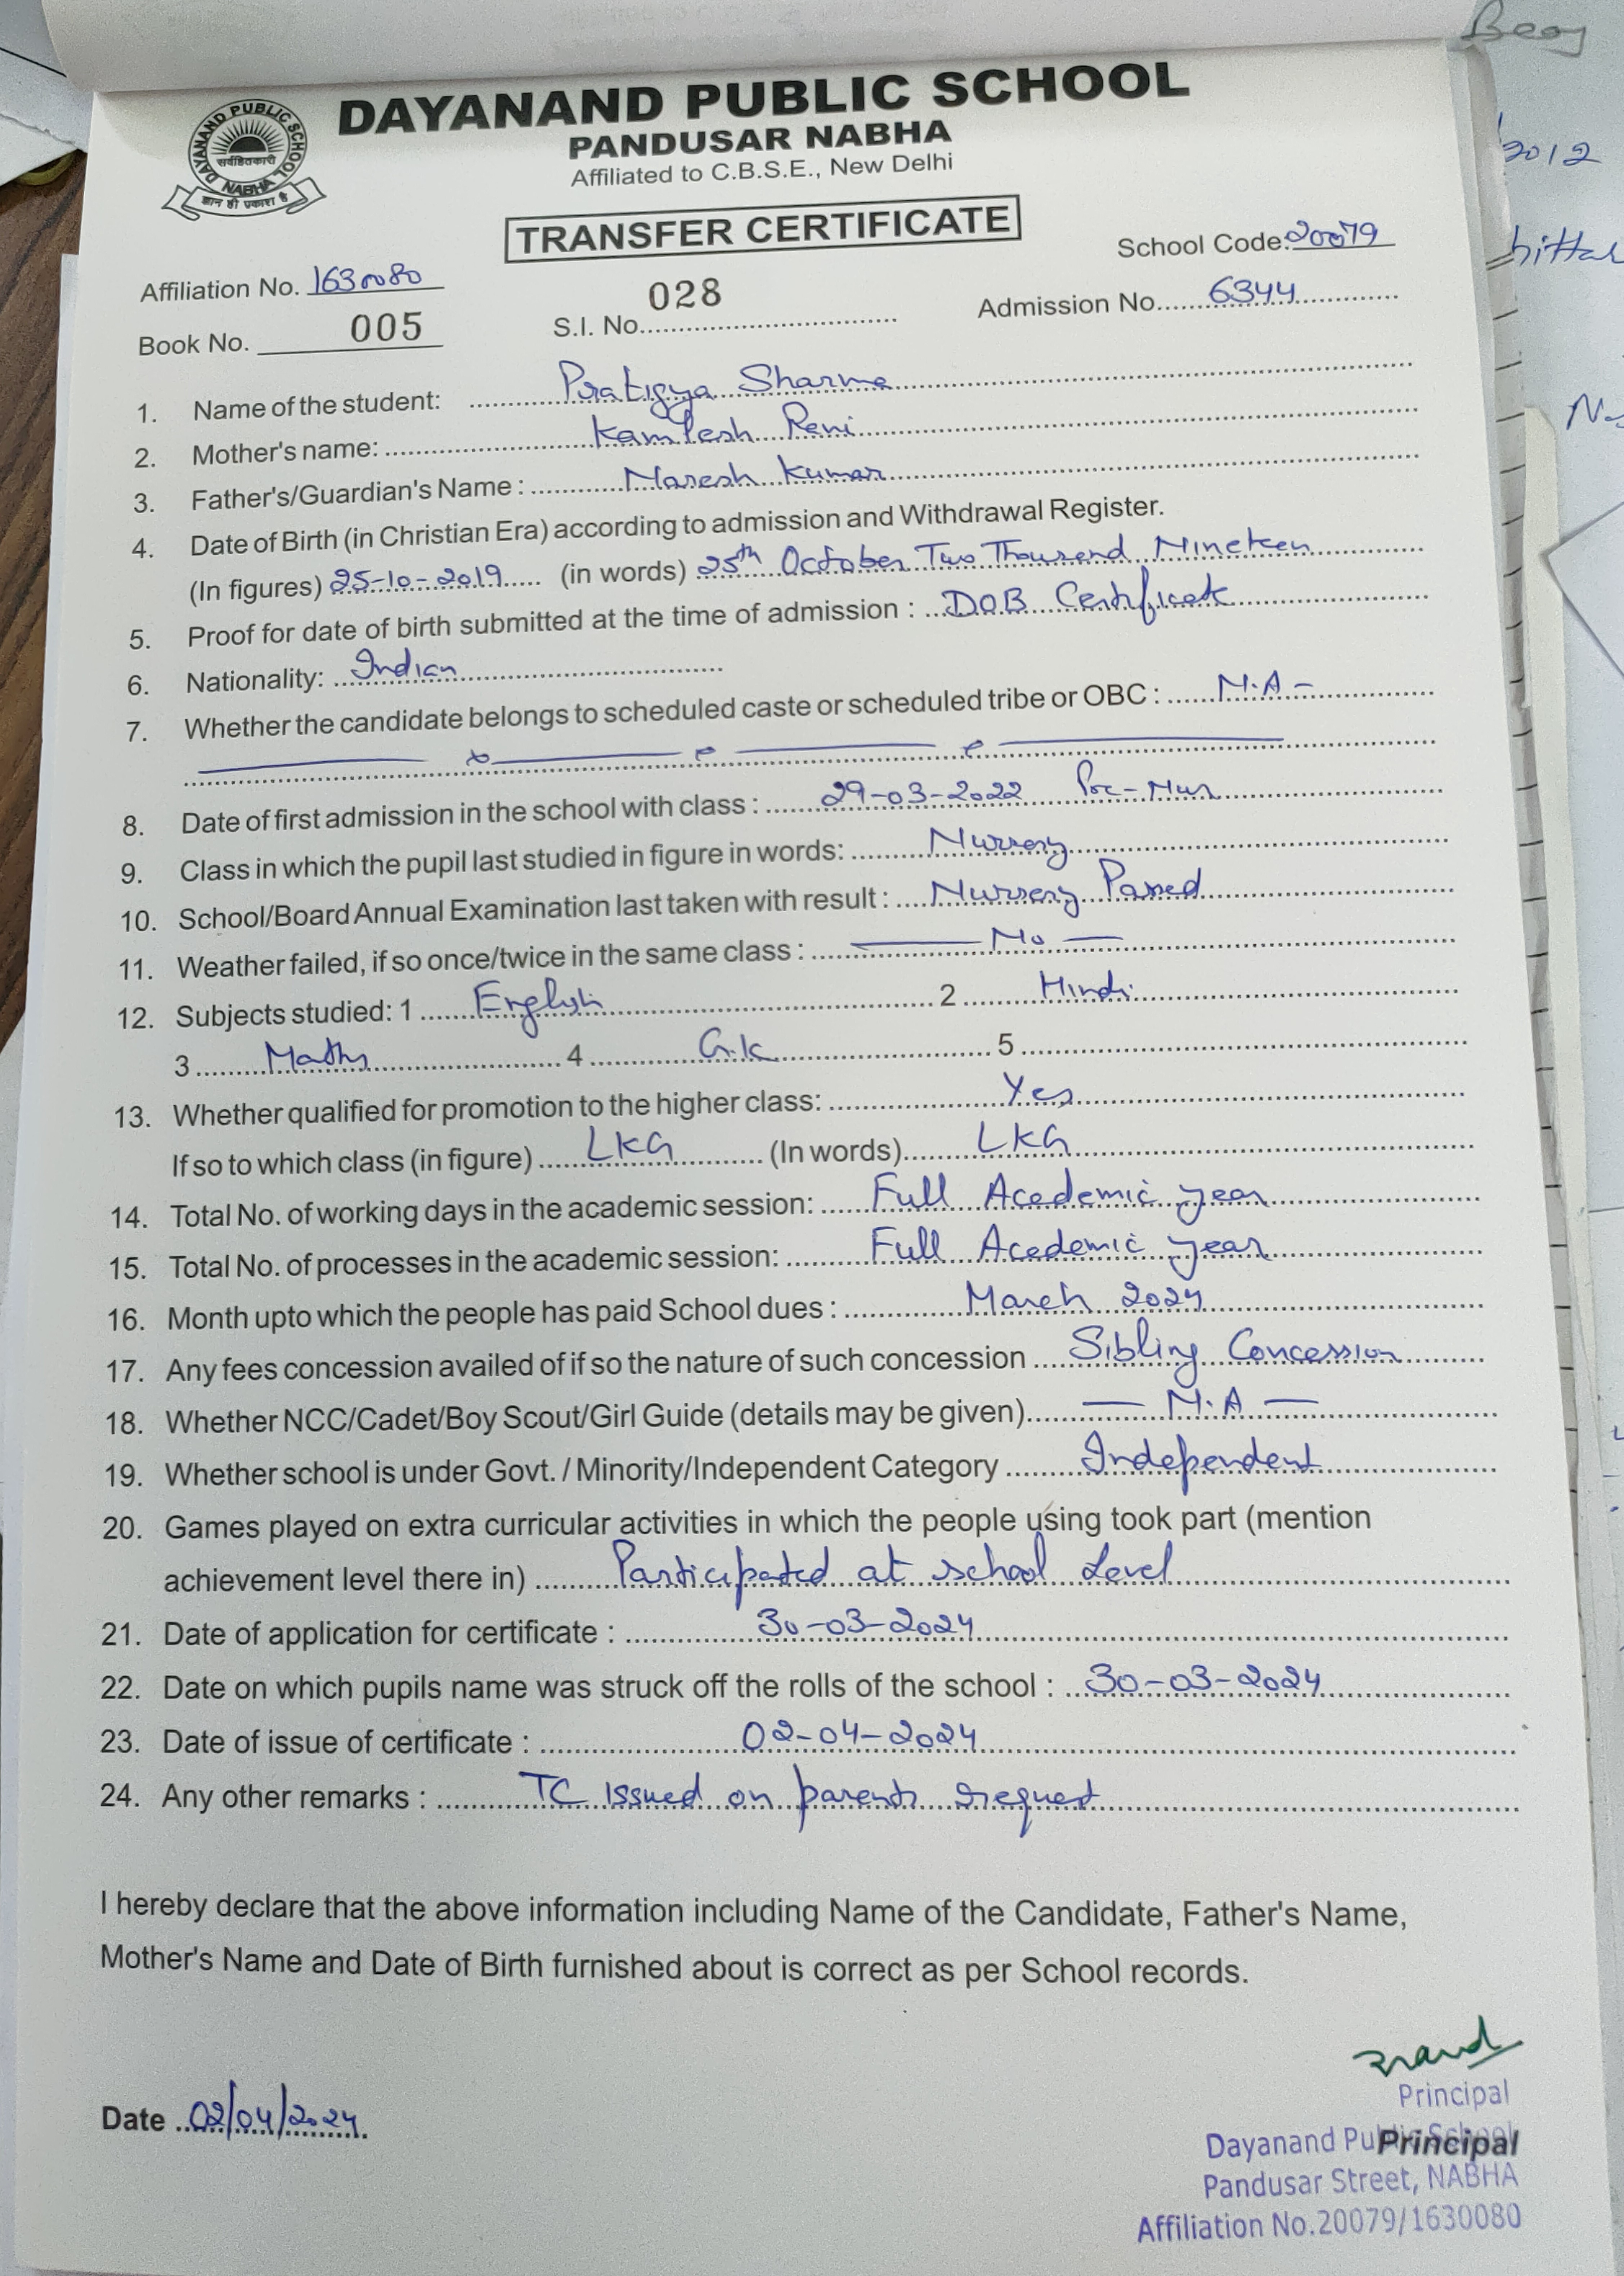 Beas
DAYANAND PUBLIC SCHOOL
PANDUSAR NABHA
Affiliated to C.B.S.E., New Delhi
DAYANAND PUBLIC SCHOOL
सर्वहितकारी
NABHA
ज्ञान ही प्रकाश है
TRANSFER CERTIFICATE
2012
School Code: 20079
Affiliation No. 1630080
028
Book No. 005 S.I. No. Admission No. 6344
1. Name of the student: Pratigya Sharma
2. Mother's name: Kamlesh Rani
3. Father's/Guardian's Name : Naresh Kumar
4. Date of Birth (in Christian Era) according to admission and Withdrawal Register.
(In figures) 25-10-2019 (in words) 25th October Two Thousand Nineteen
5. Proof for date of birth submitted at the time of admission : DOB Certificate
6. Nationality: Indian
7. Whether the candidate belongs to scheduled caste or scheduled tribe or OBC : N.A -
8. Date of first admission in the school with class : 29-03-2022 Pre-Nur
9. Class in which the pupil last studied in figure in words: Nursery
10. School/Board Annual Examination last taken with result : Nursery Passed
11. Weather failed, if so once/twice in the same class : — No —
12. Subjects studied: 1 English 2 Hindi
3 Maths 4 G.K 5
13. Whether qualified for promotion to the higher class: Yes
If so to which class (in figure) LKG (In words) LKG
14. Total No. of working days in the academic session: Full Academic year
15. Total No. of processes in the academic session: Full Academic year
16. Month upto which the people has paid School dues : March 2024
17. Any fees concession availed of if so the nature of such concession Sibling Concession
18. Whether NCC/Cadet/Boy Scout/Girl Guide (details may be given) — N.A —
19. Whether school is under Govt. / Minority/Independent Category Independent
20. Games played on extra curricular activities in which the people using took part (mention
achievement level there in) Participated at school Level
21. Date of application for certificate : 30-03-2024
22. Date on which pupils name was struck off the rolls of the school : 30-03-2024
23. Date of issue of certificate : 02-04-2024
24. Any other remarks : TC Issued on parents request
I hereby declare that the above information including Name of the Candidate, Father's Name,
Mother's Name and Date of Birth furnished about is correct as per School records.
Date 02/04/2024
Principal
Dayanand Public School
Principal
Pandusar Street, NABHA
Affiliation No.20079/1630080